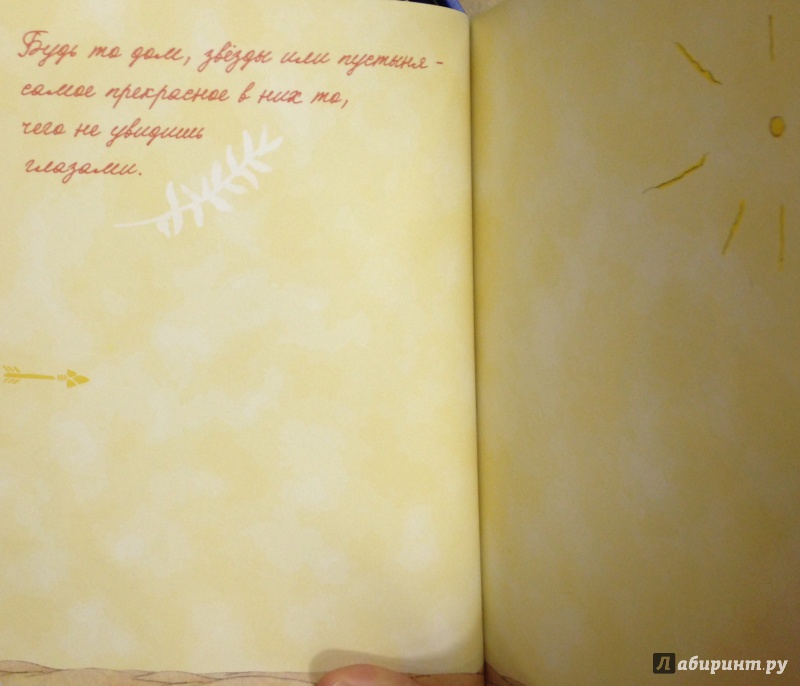 Будь то дом, звёзды или пустыня -
самое прекрасное в них то,
чего не увидишь
глазами.
Лабиринт.ру